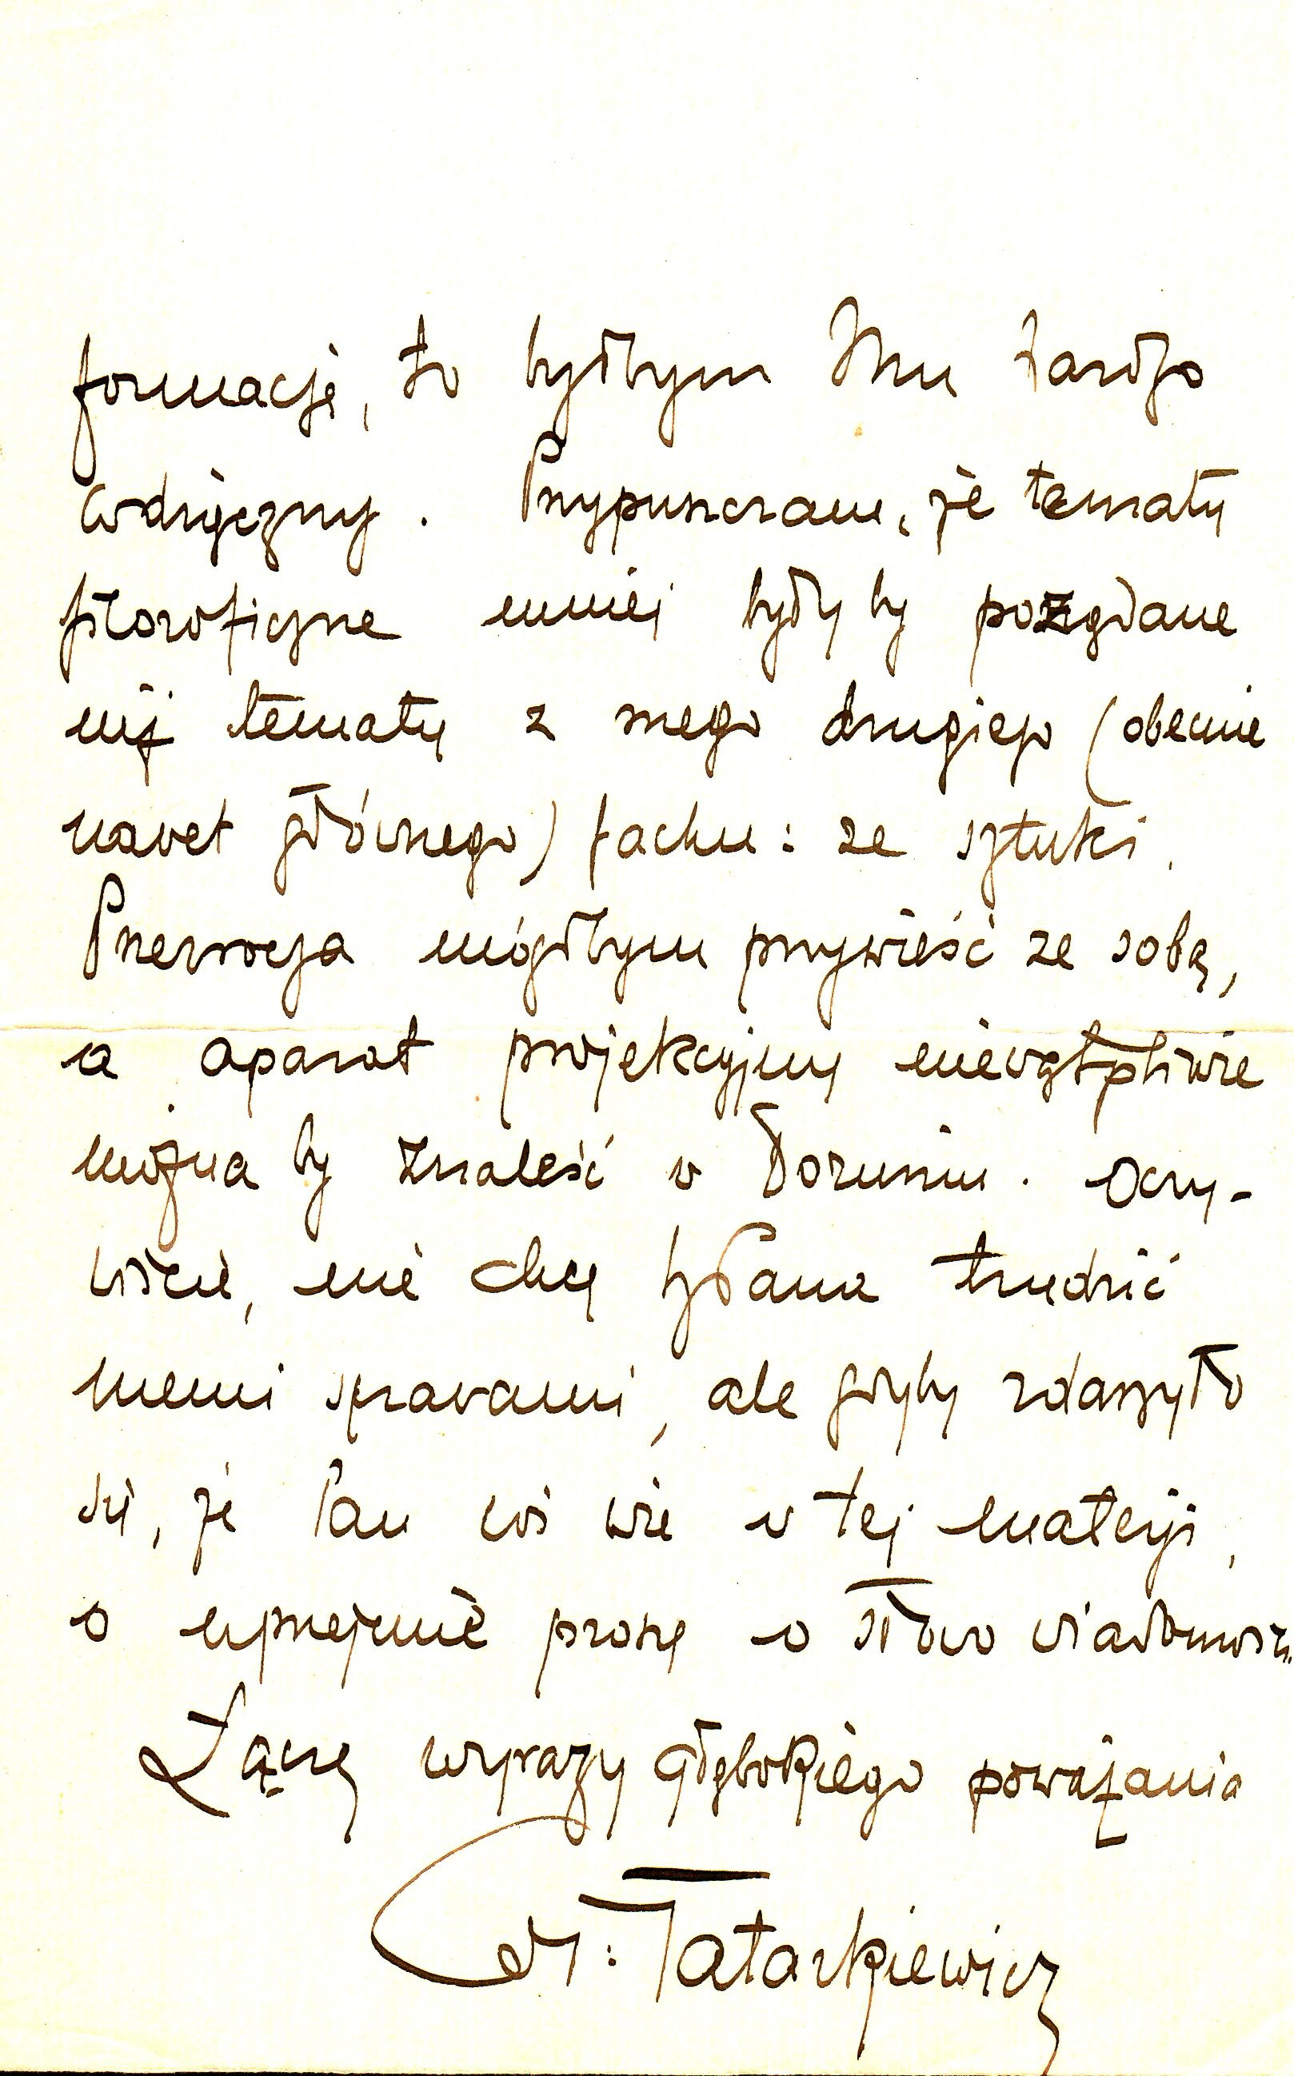 formacje, to byłbym Mu bardzo
wdzięczny. Przypuszczam, że tematy
filozoficzne mniej byłyby pożądane
niż tematy z mego drugiego (obecnie
nawet głównego) fachu: ze sztuki.
Przezrocza mógłbym przywieść ze sobą,
a aparat projekcyjny niewątpliwie
można by znaleść w Toruniu. Oczy-
wiście, nie chcę Pana trudzić
memi sprawami, ale gdyby zdarzyło
się, że Pan coś wie w tej materji,
o uprzejmie proszę o słowo wiadomości.
Łączę wyrazy głębokiego poważania
Wł. Tatarkiewicz